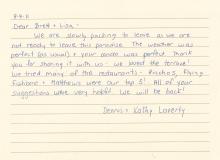 8-4-11
Dear Brett + Lisa -
We are slowly packing to leave as we are
not ready to leave this paradise. The weather was
perfect (as usual) + your condo was perfect. Thank
you for sharing it with us - we loved the terrace!
We tried many of the restaurants - Pinchos, Flying
Fishbone + Matthews were our top 3! All of your
suggestions were very helpful. We will be back!
Dennis + Kathy Laverty